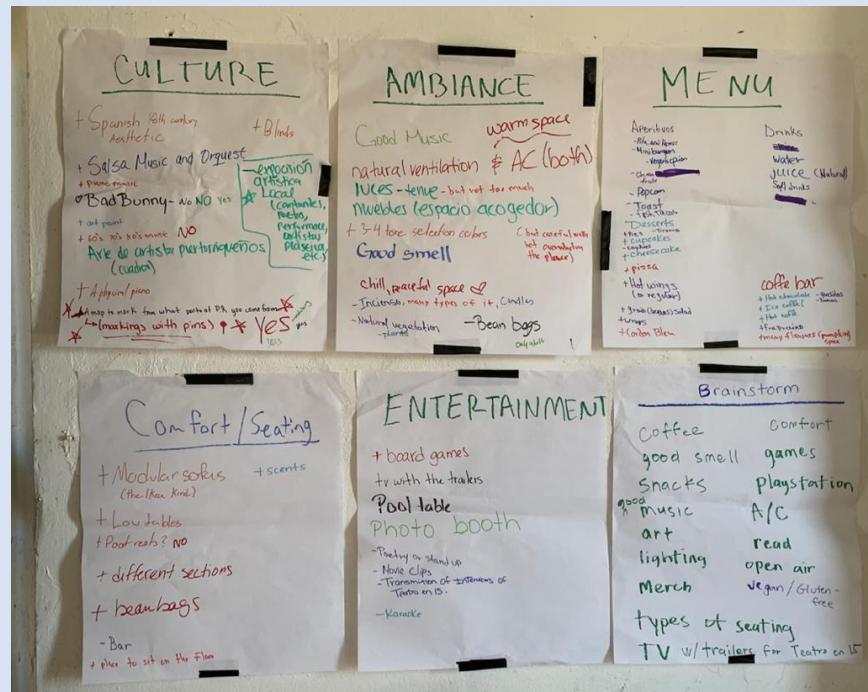 CULTURE
+ Spanish 18th century
Aesthetic
+ Blinds
+ Salsa Music and Orquest
+ Piano music
Bad Bunny - No NO Yes
+ 60's 70's 80's music NO
Arte de artistas puertorriqueños
(cuadros)
- exposición
artística
Local
(cantantes,
poetas,
performance,
artistas
etc.)
+ A physical piano
A map to mark from what part of PR you come from
(markings with pins)
Yes
yes
AMBIANCE
Good Music
warm space
natural ventilation & AC (both)
luces - tenue - but not too much
muebles (espacio acogedor)
+ 3-4 tone selection colors
(but careful with
not overwhelming
the place)
Good smell
chill, peaceful space
- Incienso, many types of it, Candles
- Natural vegetation
- plants
- Bean bags
MENU
Aperitivos
- Popcorn
- Toast
Desserts
+ cupcakes
- cookies
+ cheesecake
+ pizza
+ Hot wings
(or regular)
+ wraps
+ Cordon Bleu
Drinks
water
juice (Natural)
Soft drinks
coffe bar
+ Hot chocolate
+ Ice coffee
+ Hot coffee
+ frappucino
Comfort/Seating
+ Modular sofas
(the Ikea kind)
+ scents
+ Low tables
+ Poof rests? NO
+ different sections
+ bean bags
- Bar
+ place to sit on the Floor
ENTERTAINMENT
+ board games
tv with the trailers
Pool table
Photo booth
- Poetry or stand up
- Movie clips
- Transmission of Interviews of
Teatro en 15.
- Karaoke
Brainstorm
Coffee
comfort
good smell
games
Snacks
playstation
good
music
A/C
art
read
lighting
open air
Merch
vegan / Gluten-
free
types of seating
TV w/ trailers for Teatro en 15